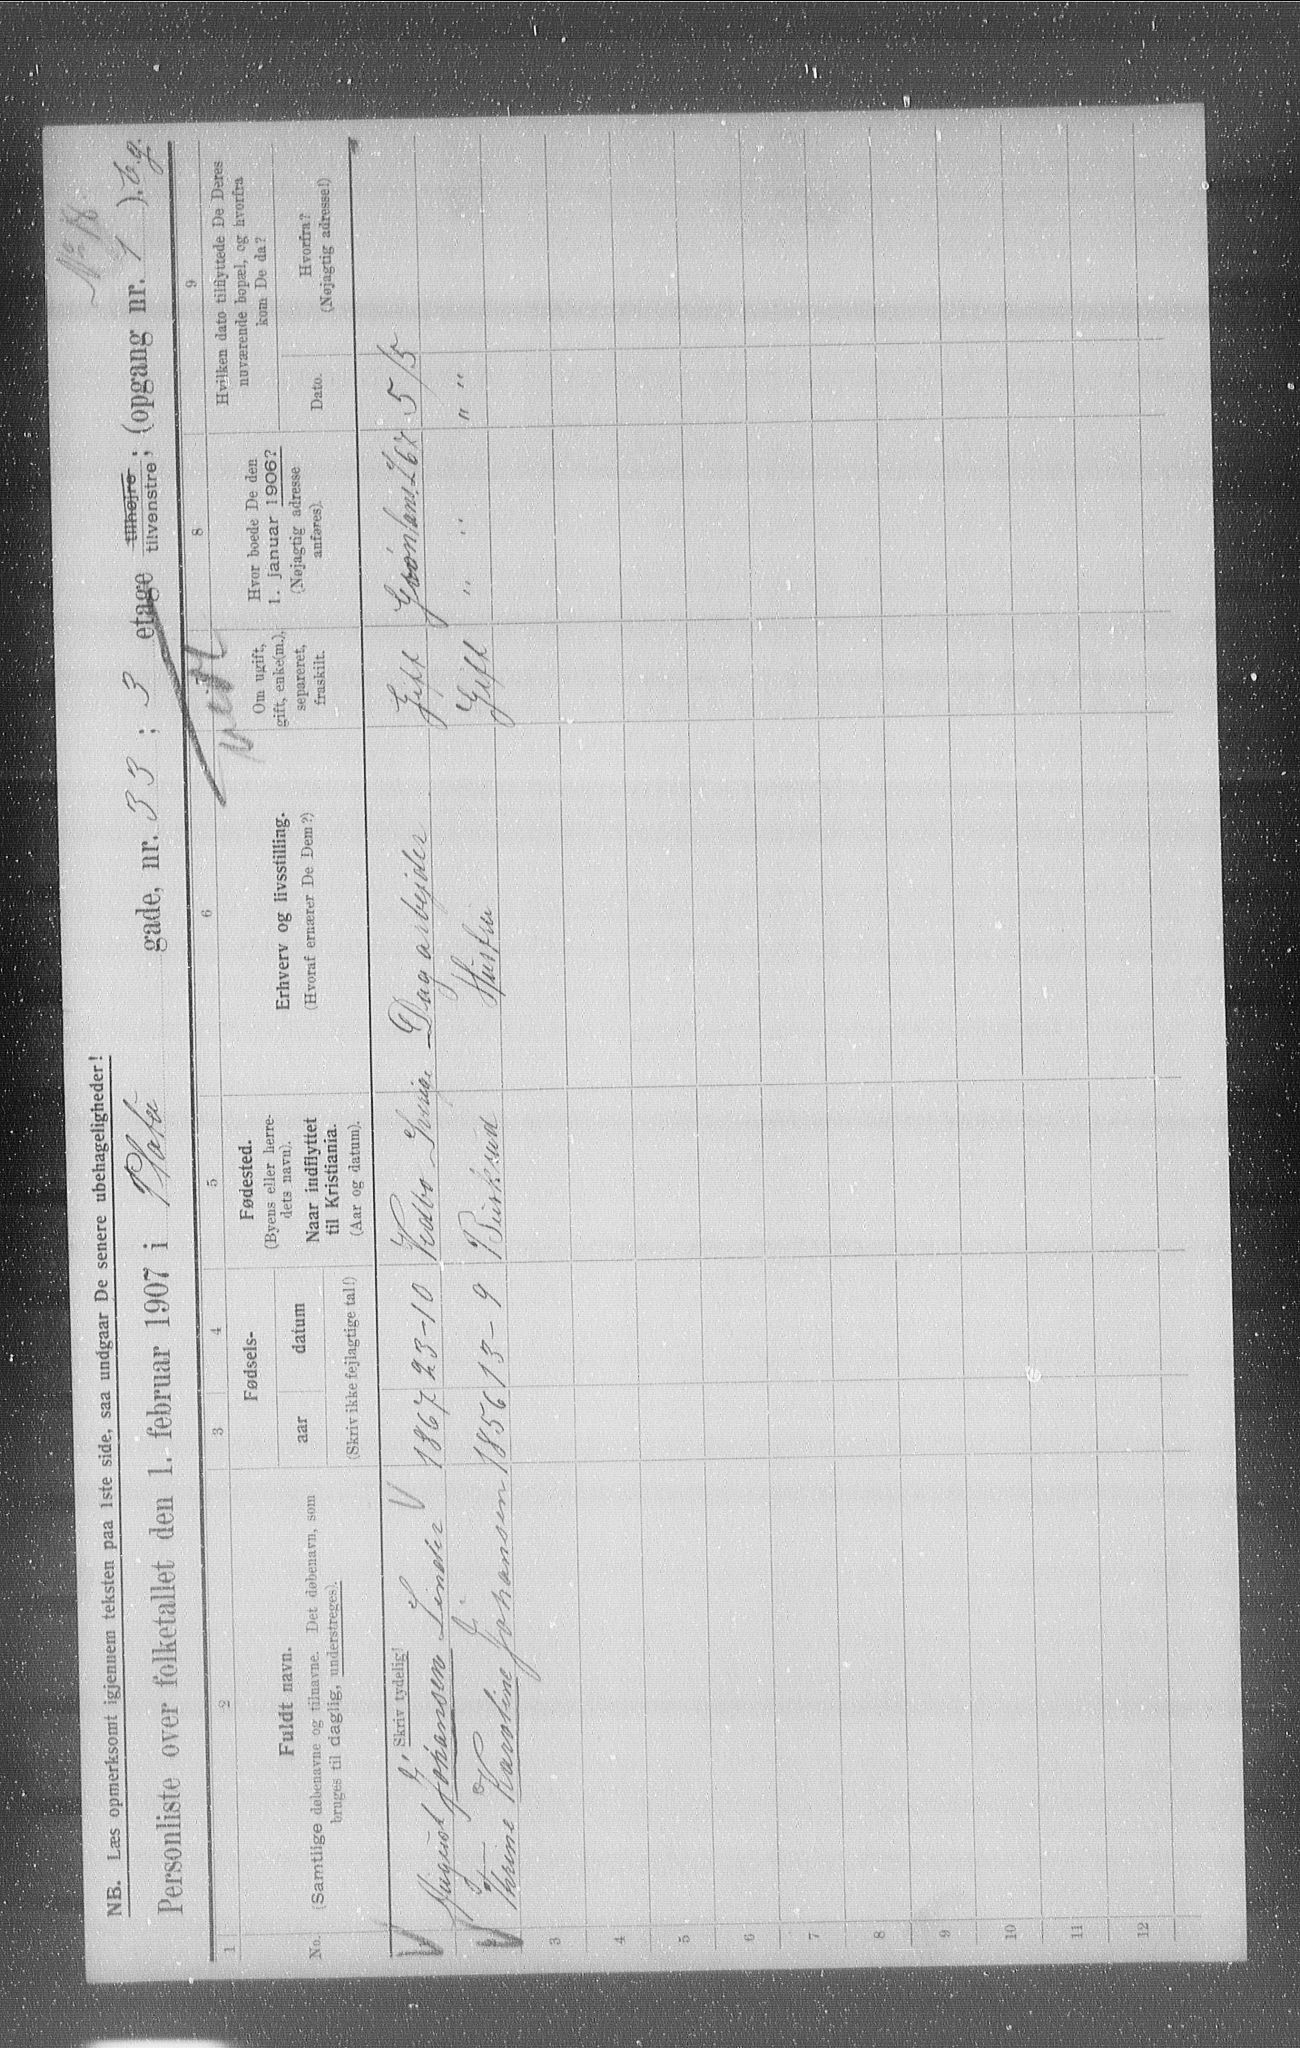 No 18.
NB. Læs opmerksomt igjennem teksten paa 1ste side, saa undgaar De senere ubehageligheder!
Personliste over folketallet den 1. februar 1907 i Platu gade, nr. 33; 3 etage tilhøjre tilvenstre; (opgang nr. 1).
1 2 3 4 5 6 7 8 9
No.
Fuldt navn.
(Samtlige døbenavne og tilnavne. Det døbenavn, som
bruges til daglig, understreges).
Fødsels-
aar datum
(Skriv ikke fejlagtige tal!)
Fødested.
(Byens eller herre-
dets navn).
Naar indflyttet
til Kristiania.
(Aar og datum).
Erhverv og livsstilling.
(Hvoraf ernærer De Dem?)
Om ugift,
gift, enke(m.),
separeret,
fraskilt.
Hvor boede De den
1. januar 1906?
(Nøjagtig adresse
anføres).
Hvilken dato tilflyttede De Deres
nuværende bopæl, og hvorfra
kom De da?
Dato.
Hvorfra?
(Nøjagtig adresse!)
Skriv tydelig!
August Johansen Linder 1867 23-10 Sverige Dagarbejder Gift Grønlans L 67 5/5
2 Thrine Karoline Johansen 1856 13-9 Buskrud Hustru Gift " " " "
3
4
5
6
7
8
9
10
11
12